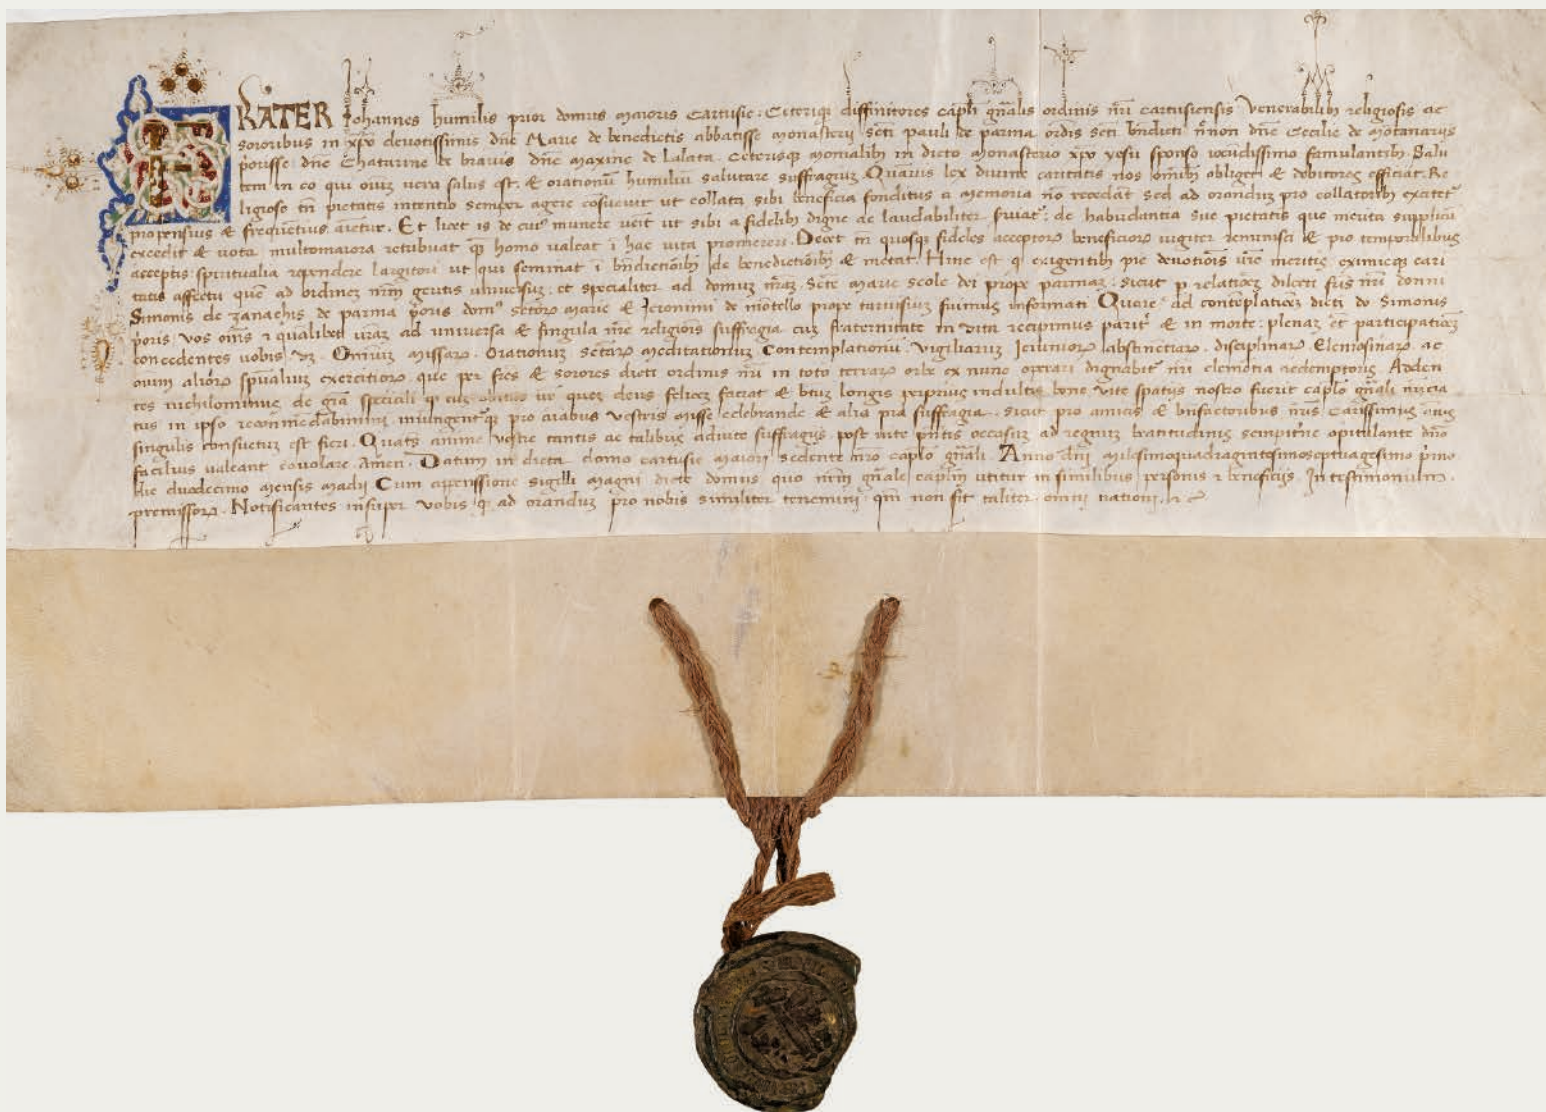 FRATER Johannes humilis prior domus maioris Cartusie: Ceteriq; diffinitores capl̄i gn̄alis ordinis nr̄i cartusiensis Venerabilib; religiosis ac
sororibus in xp̄o devotissimis dn̄e Marie de benedictis abbatisse monasterij sc̄ti pauli de parma ord̄is sc̄ti bn̄dicti dn̄e Cecilie de
dn̄e Chatarine de dn̄e Maxine de Lalata. Ceterisq; monialib; in dicto monasterio xp̄o sponso famulantib; Salu
tem in eo qui om̄iuz vera salus est. & orationū humiliū salutare suffragiuz. Quāvis lex divine caritatis nos om̄ibus obliget & debitores efficiat. Re
ligiosa tn̄ pietatis intentio semper agere cōsuevit ut collata sibi beneficia fonditus a memoria nō recedāt sed ad oranduz pro collatorib; excitet̄
propensius & frequētius Et licet is de cui⁹ munere venit ut sibi a fidelib; digne ac laudabiliter : de habundantia sue pietatis que merita supplicū
excedit & vota multomaiora retribuat q̄ homo valeat ī hac vita promereri. Decet tn̄ quosq; fideles acceptoꝝ beneficioꝝ iugiter reminisci & pro temporalibus
acceptis: spiritualia rependere largitori ut qui seminat ī bn̄dictiōib; de benedictiōib; & metat. Hinc est q̄ exigentib; pie devotiōis vr̄e meritis eximieq; cari
tatis affectu quē ad ordinez nr̄m geritis universuz: et specialiter ad domuz nr̄az Sc̄te marie scole dei prope parmaz: sicut p̄ relatiōez dilecti nr̄i domni
Simonis de zanachis de parma p̄oris dom⁹ sc̄toꝝ marie & Jeronimi de mōtello prope tarvisiuz fuimus informati Quare ad contēplatiōez dicti do. Simonis
p̄oris vos om̄s ⁊ qualibet vr̄az ad universa & singula nr̄e religiōis suffragia cuz fraternitate in vita recipimus parit̄ & in morte: plenaz participatiōez
concedentes vobis Om̄iuz missaꝝ. orationuz sc̄taꝝ meditationuz contemplationū. vigiliaruz Jeiunioꝝ abstinētiaꝝ. disciplinaꝝ Elemosinaꝝ ac
om̄iuz alioꝝ sp̄ualiuz exercitioꝝ que per fr̄es & sorores dicti ordinis nr̄i in toto terraꝝ orbe ex nunc operari dignabit̄ nr̄i clemētia redemptoris. Adden
tes nichilominus de grā speciali q̄ cuz obitus vr̄ quez deus felicez faciat & longis prius indultis bene vite spatijs nostro fuerit cap̄lo gn̄ali nūcia
tus in ipso recōmēdabimini: iniungent̄q; pro aiābus vestris misse celebrande & alia pia suffragia. sicut pro amicis & bn̄factoribus nr̄is carissimis
singulis consuetuz est fieri. Quatꝫ anime vestre tantis ac talibus adiute suffragijs. post vite p̄ntis occasuz ad regnuz beatitudinis sempit̄ne opitulante dn̄o
facilius valeant evolare. Amen. Datum in dicta domo cartusie maioris sedente nr̄o cap̄lo gn̄ali. Anno dn̄i milesimoquadragintesimoseptuagesimo p̄mo
die duodecimo mensis madij Cum appensione sigilli magni dicte domus quo nr̄m gn̄ale cap̄lm utitur in similibus personis ⁊ beneficijs. In testimonium.
premissoꝝ. Notificantes insuper vobis q̄ ad oranduz pro nobis similiter tenemini qm̄ non fit taliter omni nationi.